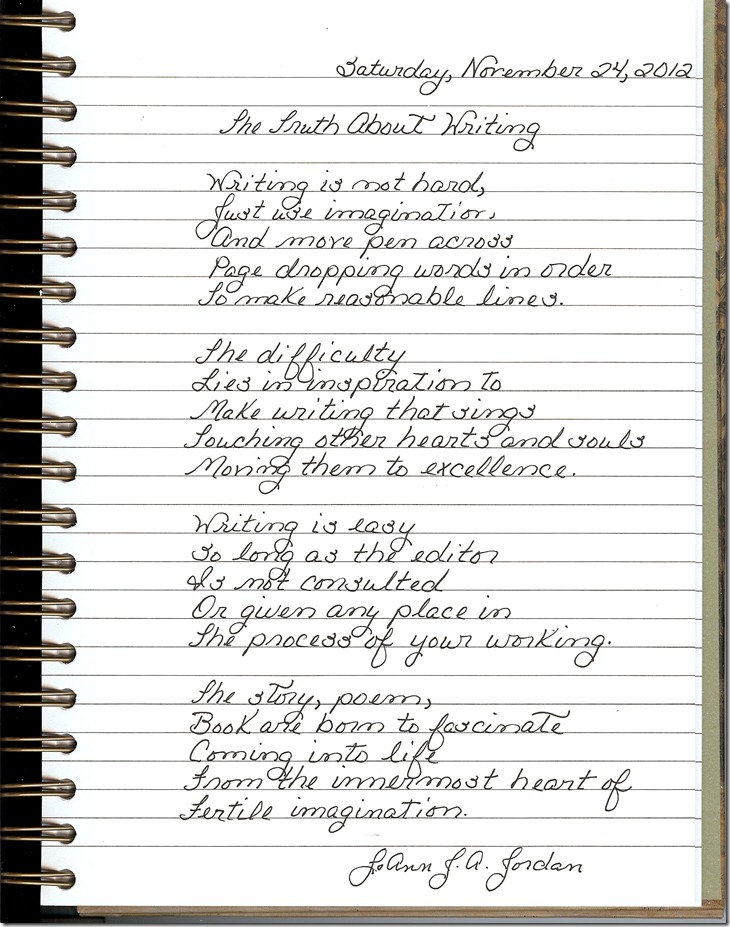 Saturday, November 24, 2012
The Truth About Writing
Writing is not hard,
Just use imagination,
And move pen across
Page dropping words in order
To make reasonable lines.
The difficulty
Lies in inspiration to
Make writing that sings
Touching other hearts and souls
Moving them to excellence.
Writing is easy
So long as the editor
Is not consulted
Or given any place in
The process of your working.
The story, poem,
Book are born to fascinate
Coming into life
From the innermost heart of
Fertile imagination.
JoAnn J. A. Jordan